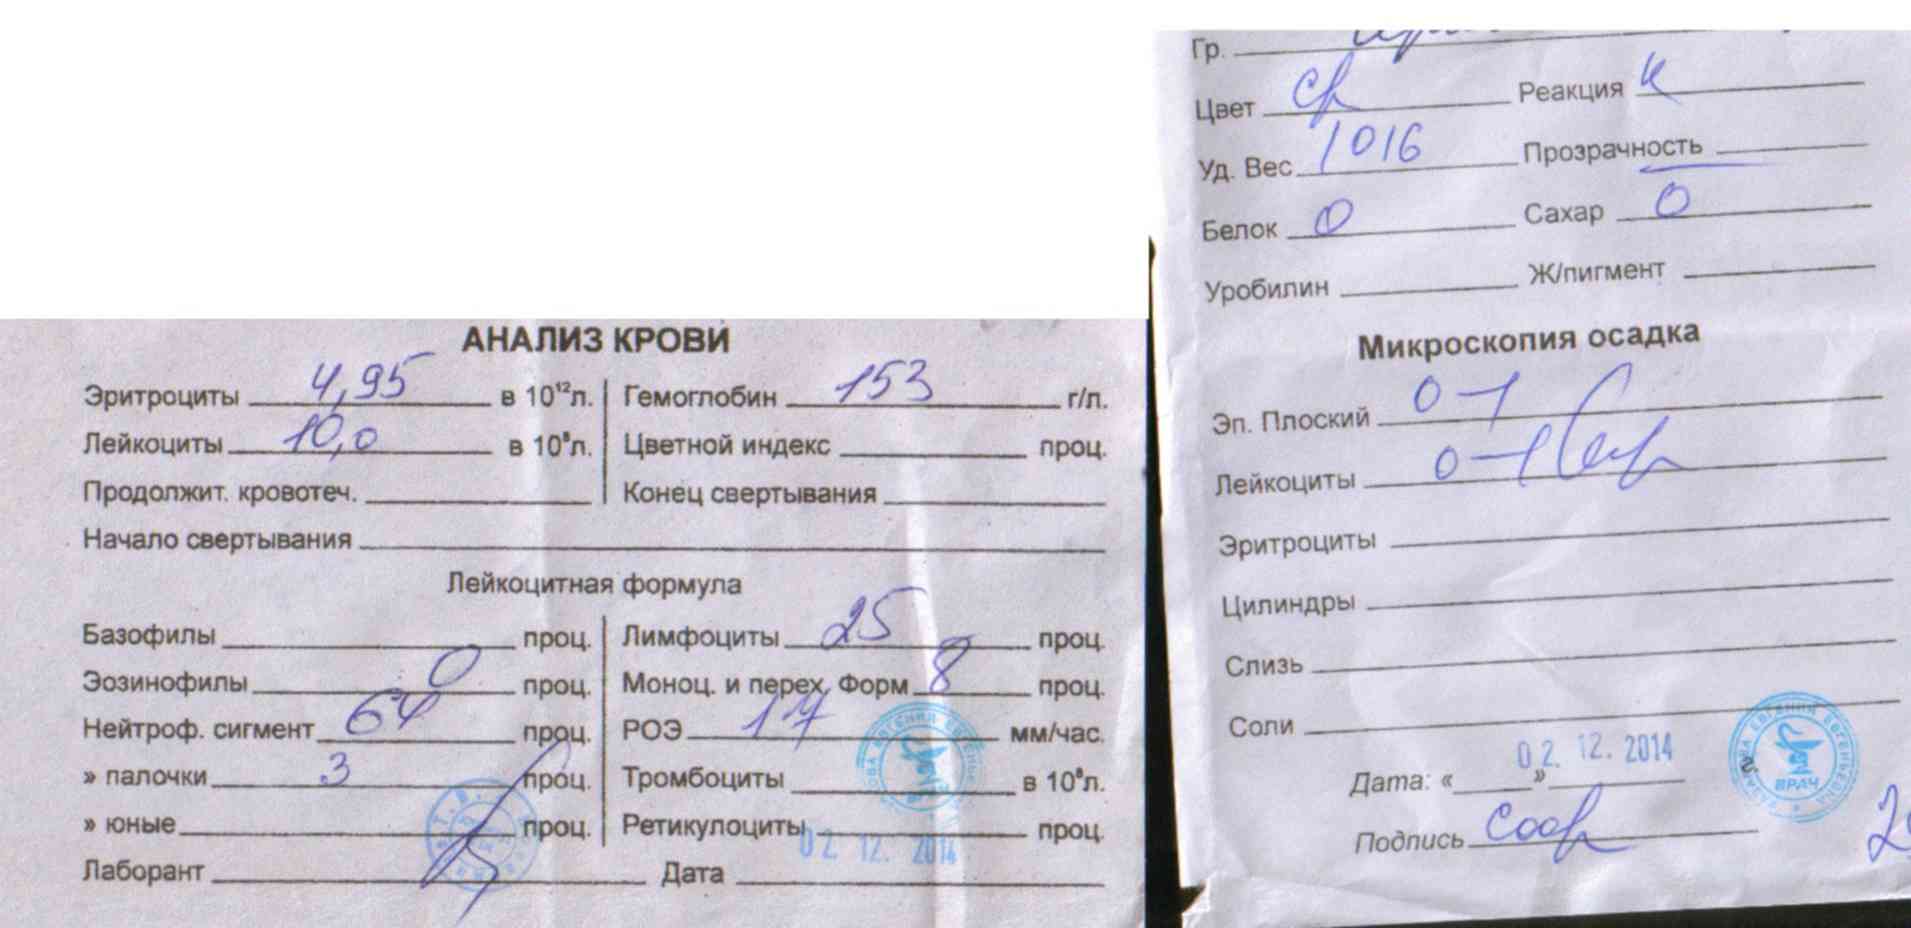 АНАЛИЗ КРОВИ
Эритроциты 4,95 в 10¹²л. Гемоглобин 153 г/л.
Лейкоциты 10,0 в 10⁹л. Цветной индекс проц.
Продолжит. кровотеч. Конец свертывания
Начало свертывания
Лейкоцитная формула
Базофилы проц. Лимфоциты 25 проц.
Эозинофилы 0 проц. Моноц. и перех. Форм 8 проц.
Нейтроф. сигмент 64 проц. РОЭ 17 мм/час.
» палочки 3 проц. Тромбоциты в 10⁹л.
» юные проц. Ретикулоциты проц.
02. 12. 2014
Лаборант Дата
Гр.
Цвет Реакция к
Уд. Вес 1016 Прозрачность
Белок 0 Сахар 0
Уробилин Ж/пигмент
Микроскопия осадка
Эп. Плоский 0-1
Лейкоциты 0-1
Эритроциты
Цилиндры
Слизь
Соли
02. 12. 2014
Дата: « »
ВРАЧ
Подпись